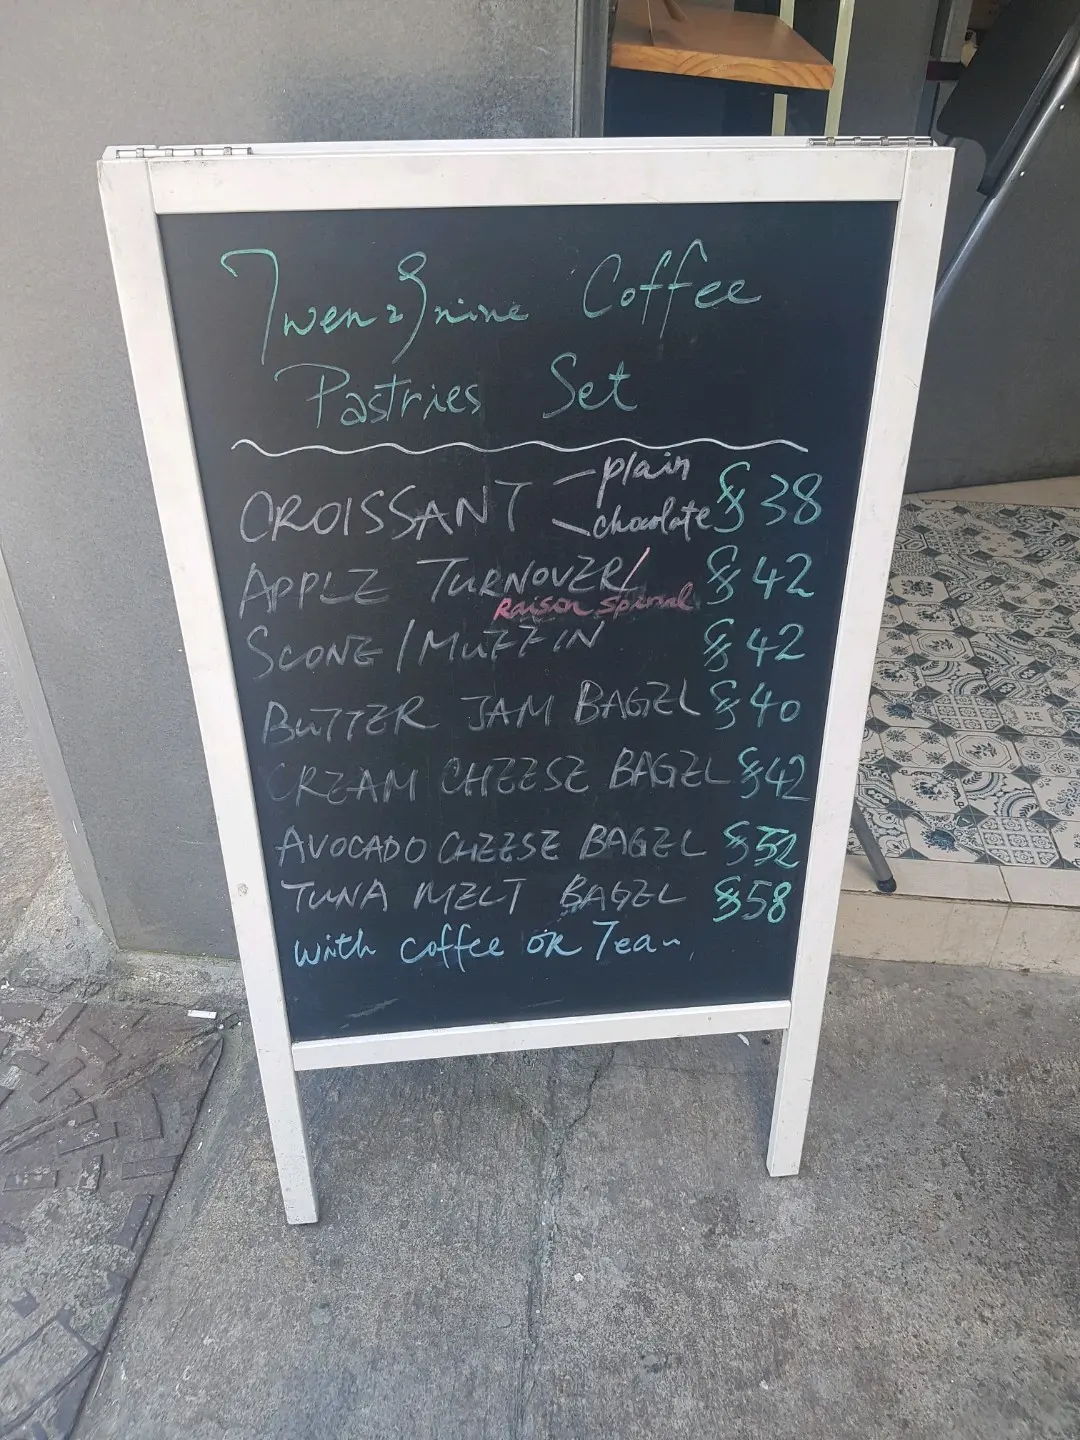 Twen29nine Coffee
Pastries Set
CROISSANT plain $38
chocolate
APPLE TURNOVER/ $42
Raison spirsal
SCONE/MUFFIN $42
BUTTER JAM BAGEL $40
CREAM CHEESE BAGEL $42
AVOCADO CHEESE BAGEL $52
TUNA MELT BAGEL $58
with coffee OR Tea